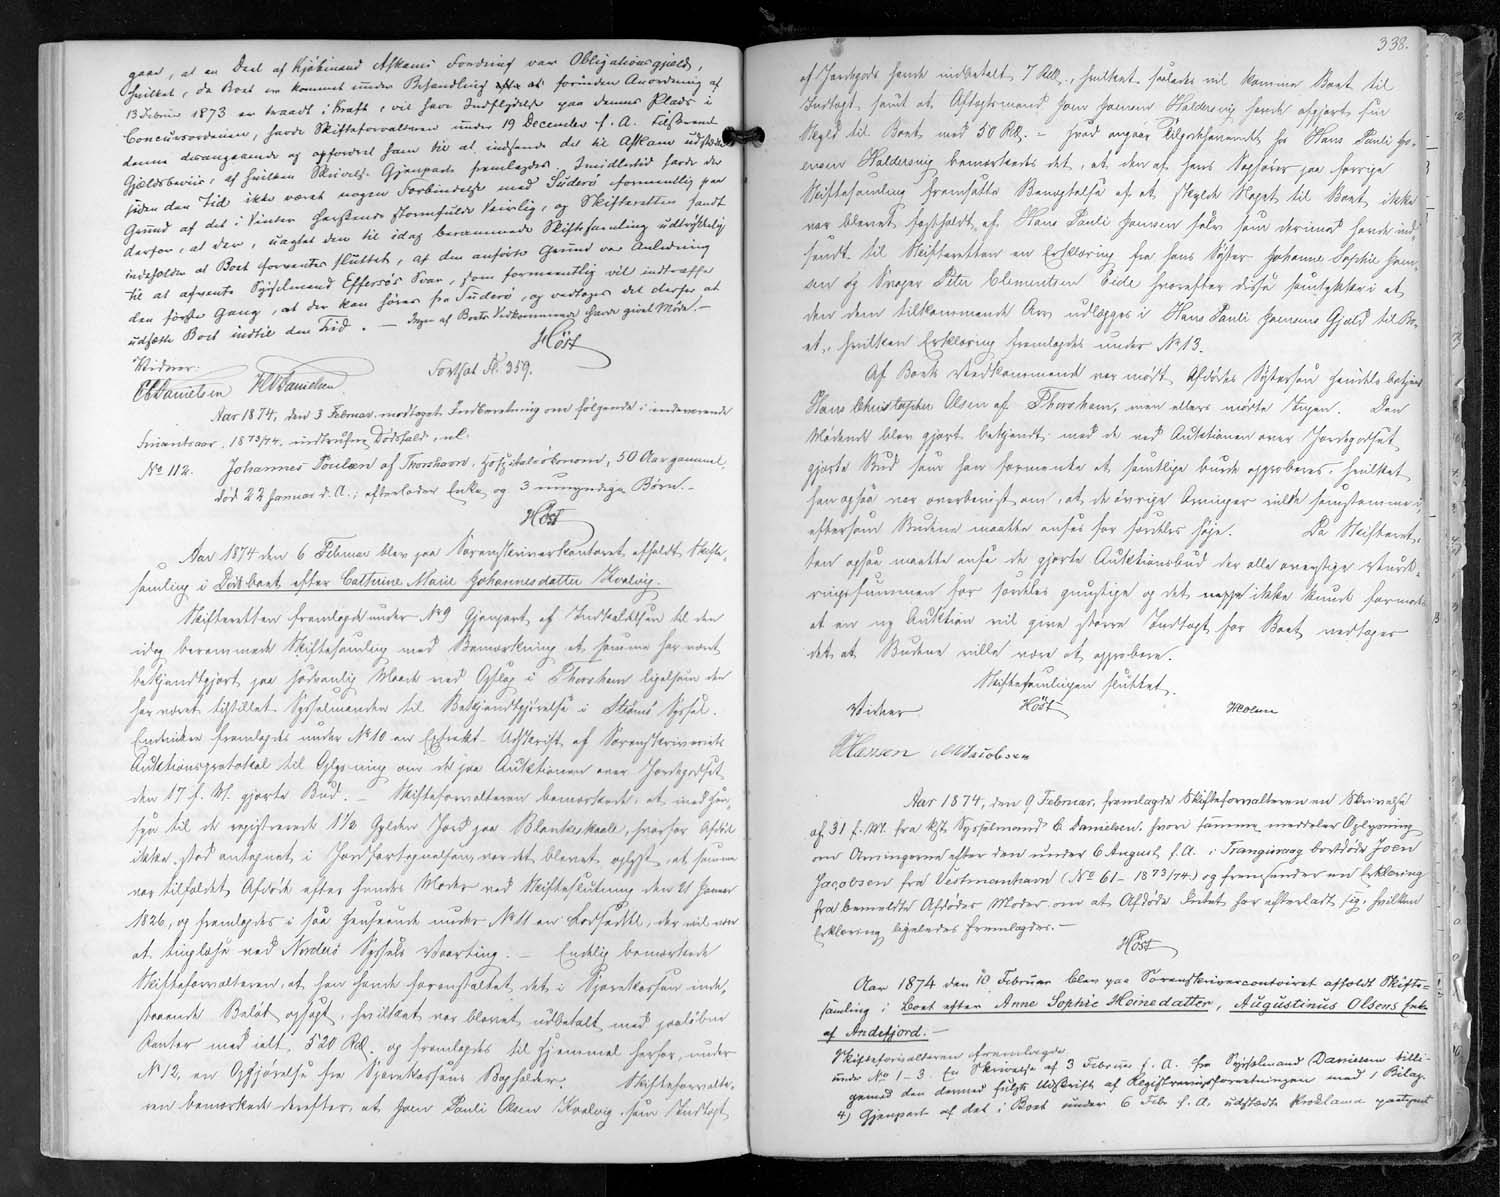 gaar, at en Deel af Kjøbmand Askams Fordring var Obligationsgjæld,
hvilket, da Boet er kommet under Behandling at forinden Anordning af
13 Februar 1873 er traadt i Kraft, vil have Indflydelse paa dennes Plads i
Concursordenen, havde Skifteforvalteren under 19 December f. A. tilskrevet
denne desangaaende og opfordret ham til at indsende det til Askam udstedte
Gjældsbeviis, af hvilken Skrivelse Gjenpart fremlagdes. Imidlertid havde der
siden den Tid ikke været nogen Forbindelse med Suderø formentlig paa
Grund af det i Vinter herskende stormfulde Veirlig, og Skifteretten fandt
derfor, at der, uagtet den til idag berammede Skiftesamling udtrykkelig
indeholder at Boet forventes sluttet, af den anførte Grund var Anledning
til at afvente Sysselmand Effersøs Svar, som formeentlig vil indtræffe
den første Gang, at der kan høres fra Suderø, og vedtoges det derfor at
udsætte Boet indtil den Tid. — Ingen af Boets Vedkommende havde givet Møde. —
Høst
Vidner:
E Danielsen H Danielsen Fortsat F. 359.
Aar 1874, den 3 Februar modtoges Indberetning om følgende i indeværende
Finantsaar, 1873/74, indtrufne Dødsfald, nl.
No 112. Johannes Poulsen af Thorshavn, Hospitalsøkonom, 50 Aar gammel,
død 22 Januar d. A.; efterlader Enke og 3 umyndige Børn. —
Høst
Aar 1874 den 6 Februar blev paa Sorenskriverkontoret afholdt Skifte-
samling i Dødsboet efter Cathrine Marie Johannesdatter Kvalvig.
Skifteretten fremlagde under No 9 Gjenpart af Indkaldelsen til den
idag berammede Skiftesamling med Bemærkning at samme har været
bekjendtgjort paa sædvanlig Maade ved Opslag i Thorshavn ligesom den
har været tilstillet Sysselmanden til Bekjendtgjørelse i Strømø Syssel.
Endvidere fremlagdes under No 10 en Extrakt-Udskrift af Sorenskriveriets
Auktionsprotokol til Oplysning om de paa Auktionen over Jordegodset
den 17 f. M. gjorte Bud. — Skifteforvalteren bemærkede, at med Hen-
syn til de registrerede 1½ Gylden Jord paa Blankeskaale, hvorfor Afdøde
ikke stod antegnet i Jordfortegnelsen, var det blevet oplyst, at samme
var tilfaldet Afdøde efter hendes Moder ved Skifteslutning den 21 Januar
1826, og fremlagdes i saa Henseende under No 11 en Lodseddel, der vil være
at tinglæse ved Norderø Syssels Vaarting. — Endelig bemærkede
Skifteforvalteren, at han havde foranstaltet det i Sparekassen inde-
staaende Beløb opsagt, hvilket var blevet udbetalt med paaløbne
Renter med ialt 520 Rd. og fremlagdes til Hjemmel herfor, under
No 12, en Opgjørelse fra Sparekassens Bogholder. Skifteforvalte-
ren bemærkede derefter, at Joen Pauli Olsen Kvalvig, som Indtægt
338.
af Jordegods havde indbetalt 7 Rd., hvilket saaledes vil komme Boet til
Indtægt samt at Aftægtsmand Joen Hansen Haldersvig havde afgjort sin
Skyld til Boet med 50 Rd. — Hvad angaar Tilgodehavendet hos Hans Pauli Jo-
ensen Haldersvig bemærkedes det, at den af hans Ægtefælle paa forrige
Skiftesamling fremsatte Benægtelse af at skylde Noget til Boet ikke
var blevet fastholdt af Hans Pauli Joensen selv som derimod havde ind-
sendt til Skifteretten en Erklæring fra hans Søster Johanne Sophie Joen-
sen og Svoger Peter Clementsen Eide hvorefter disse samtykker i at
den dem tilkommende Arv udlægges i Hans Pauli Joensens Gjæld til Bo-
et, hvilken Erklæring fremlagdes under No 13.
Af Boets Vedkommende var mødt Afdødes Søstersøn Handelsbetjent
Hans Christopher Olsen af Thorshavn, men ellers mødte Ingen. Den
Mødende blev gjort bekjendt med de ved Auktionen over Jordegodset
gjorte Bud som han formente at samtlige burde approberes, hvilket
han ogsaa var overbeviist om, at de øvrige Arvinger vilde samstemme i,
eftersom Budene maatte anses for særdeles høje. Da Skifteret-
ten ogsaa maatte anse de gjorte Auktionsbud der alle overstige Vurde-
ringssummen for særdeles gunstige og det ikke kunde formodes
at en ny Auktion vil give større Indtægt for Boet vedtoges
det at Budene ville være at approbere.
Skiftesamlingen sluttet.
Vidner Høst HCOlsen
HHansen MJacobsen
Aar 1874, den 9 Februar, fremlagde Skifteforvalteren en Skrivelse
af 31 f. M. fra kst. Sysselmand E. Danielsen, hvori samme meddeler Oplysning
om Arvingerne efter den under 6 August f. A. i Trangisvaag bortdøde Joen
Jacobsen fra Vestmanhavn (No 61 – 1873/74) og fremsender en Erklæring
fra bemeldte Afdødes Moder om at Afdøde Intet har efterladt sig, hvilken
Erklæring ligeledes fremlagdes. —
Høst
Aar 1874 den 10 Februar blev paa Sorenskrivercontoiret afholdt Skifte-
samling i Boet efter Anne Sophie Heinedatter, Augustinus Olsens Enke
af Andefjord. —
Skifteforvalteren fremlagde
under No 1–3. En Skrivelse af 3 Februar f. A. fra Sysselmand Danielsen tilli-
gemed den dermed fulgte Udskrift af Registreringsforretningen med 1 Bilag.
4) Gjenpart af det i Boet under 6 Febr f. A. udstædte Proklama